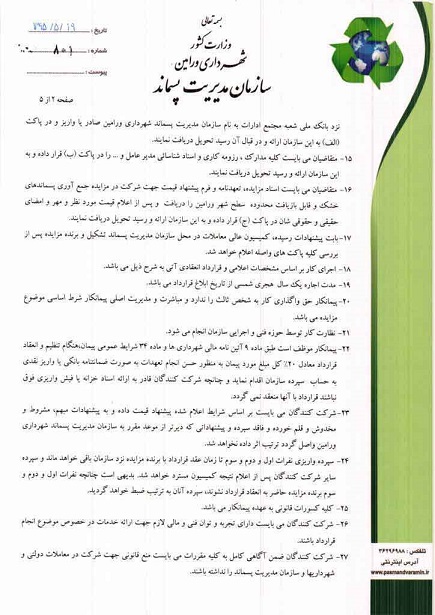 بسمه تعالی
وزارت کشور
شهرداری ورامین
سازمان مدیریت پسماند
تاریخ: ۷۹۵/۵/۱۹
شماره: ۸۰۱
پیوست:
صفحه ۲ از ۵
نزد بانک ملی شعبه مجتمع ادارات به نام سازمان مدیریت پسماند شهرداری ورامین صادر یا واریز و در پاکت
(الف) به این سازمان ارائه و در قبال آن رسید تحویل دریافت نمایند.
۱۵- متقاضیان می بایست کلیه مدارک ، رزومه کاری و اسناد شناسائی مدیر عامل و ... را در پاکت (ب) قرار داده و به
این سازمان ارائه و رسید تحویل دریافت نمایند.
۱۶- متقاضیان می بایست اسناد مزایده، تعهدنامه و فرم پیشنهاد قیمت جهت شرکت در مزایده جمع آوری پسماندهای
خشک و قابل بازیافت محدوده سطح شهر ورامین را دریافت و پس از اعلام قیمت مورد نظر و مهر و امضای
حقیقی و حقوقی شان در پاکت (ج) قرار داده و به این سازمان ارائه و رسید تحویل دریافت نمایند.
۱۷- بابت پیشنهادات رسیده، کمیسیون عالی معاملات در محل سازمان مدیریت پسماند تشکیل و برنده مزایده پس از
بررسی کلیه پاکت های واصله اعلام خواهد شد.
۱۸- اجرای کار بر اساس مشخصات اعلامی و قرارداد انعقادی آتی به شرح ذیل می باشد.
۱۹- مدت اجاره یک سال هجری شمسی از تاریخ ابلاغ قرارداد می باشد.
۲۰- پیمانکار حق واگذاری کار به شخص ثالث را ندارد و مباشرت و مدیریت اصلی پیمانکار شرط اساسی موضوع
مزایده می باشد.
۲۱- نظارت کار توسط حوزه فنی و اجرایی سازمان انجام می شود.
۲۲- پیمانکار موظف است طبق ماده ۹ آئین نامه مالی شهرداری ها و ماده ۳۴ شرایط عمومی پیمان،هنگام تنظیم و انعقاد
قرارداد معادل ۲۰٪ کل مبلغ مورد پیمان به منظور حسن انجام تعهدات به صورت ضمانتنامه بانکی یا واریز نقدی
به حساب سپرده سازمان اقدام نماید و چنانچه شرکت کنندگان قادر به ارائه اسناد خزانه یا فیش واریزی فوق
نباشند قرارداد با آنها منعقد نمی گردد.
۲۳- شرکت کنندگان می بایست بر اساس شرایط اعلام شده پیشنهاد قیمت داده و به پیشنهادات مبهم، مشروط و
مخدوش و قلم خورده و فاقد سپرده و پیشنهاداتی که دیرتر از موعد مقرر به سازمان مدیریت پسماند شهرداری
ورامین واصل گردد ترتیب اثر داده نخواهد شد.
۲۴- سپرده واریزی نفرات اول و دوم و سوم تا زمان عقد قرارداد با برنده مزایده نزد سازمان باقی خواهد ماند و سپرده
سایر شرکت کنندگان پس از اعلام نتیجه کمیسیون مسترد خواهد شد. بدیهی است چنانچه نفرات اول و دوم و
سوم برنده مزایده حاضر به انعقاد قرارداد نشوند، سپرده آنان به ترتیب ضبط خواهد گردید.
۲۵- کلیه کسورات قانونی به عهده پیمانکار می باشد.
۲۶- شرکت کنندگان می بایست دارای تجربه و توان فنی و مالی لازم جهت ارائه خدمات در خصوص موضوع انجام
قرارداد باشند.
۲۷- شرکت کنندگان ضمن آگاهی کامل به کلیه مقررات می بایست منع قانونی جهت شرکت در معاملات دولتی و
شهرداریها و سازمان مدیریت پسماند را نداشته باشند.
تلفکس: ۳۶۲۹۶۹۸۸
آدرس اینترنتی
www.pasmandvaramin.ir